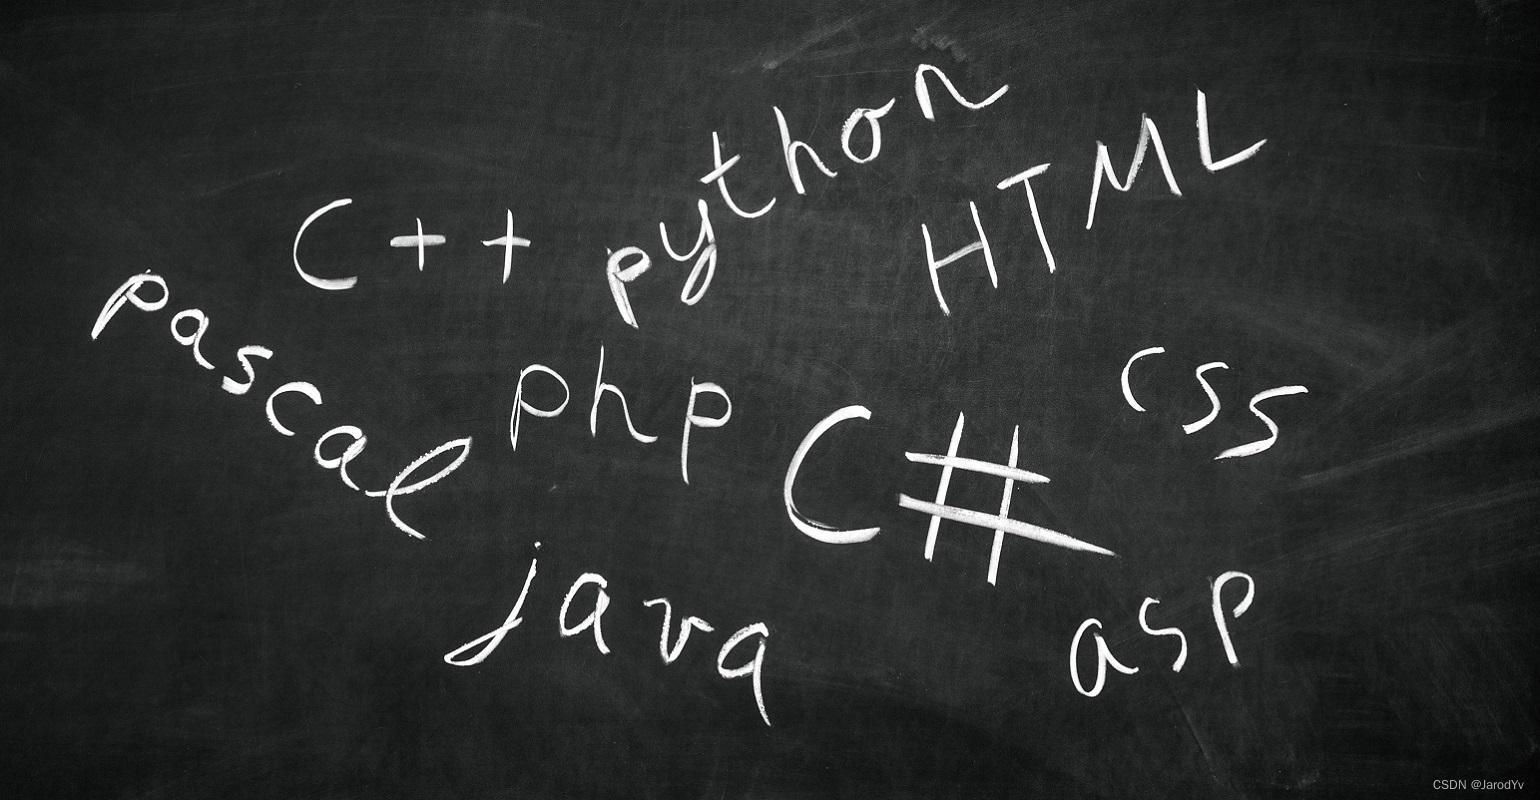 python
HTML
C++
pascal
php
css
C#
java
asp
CSDN @JarodYv